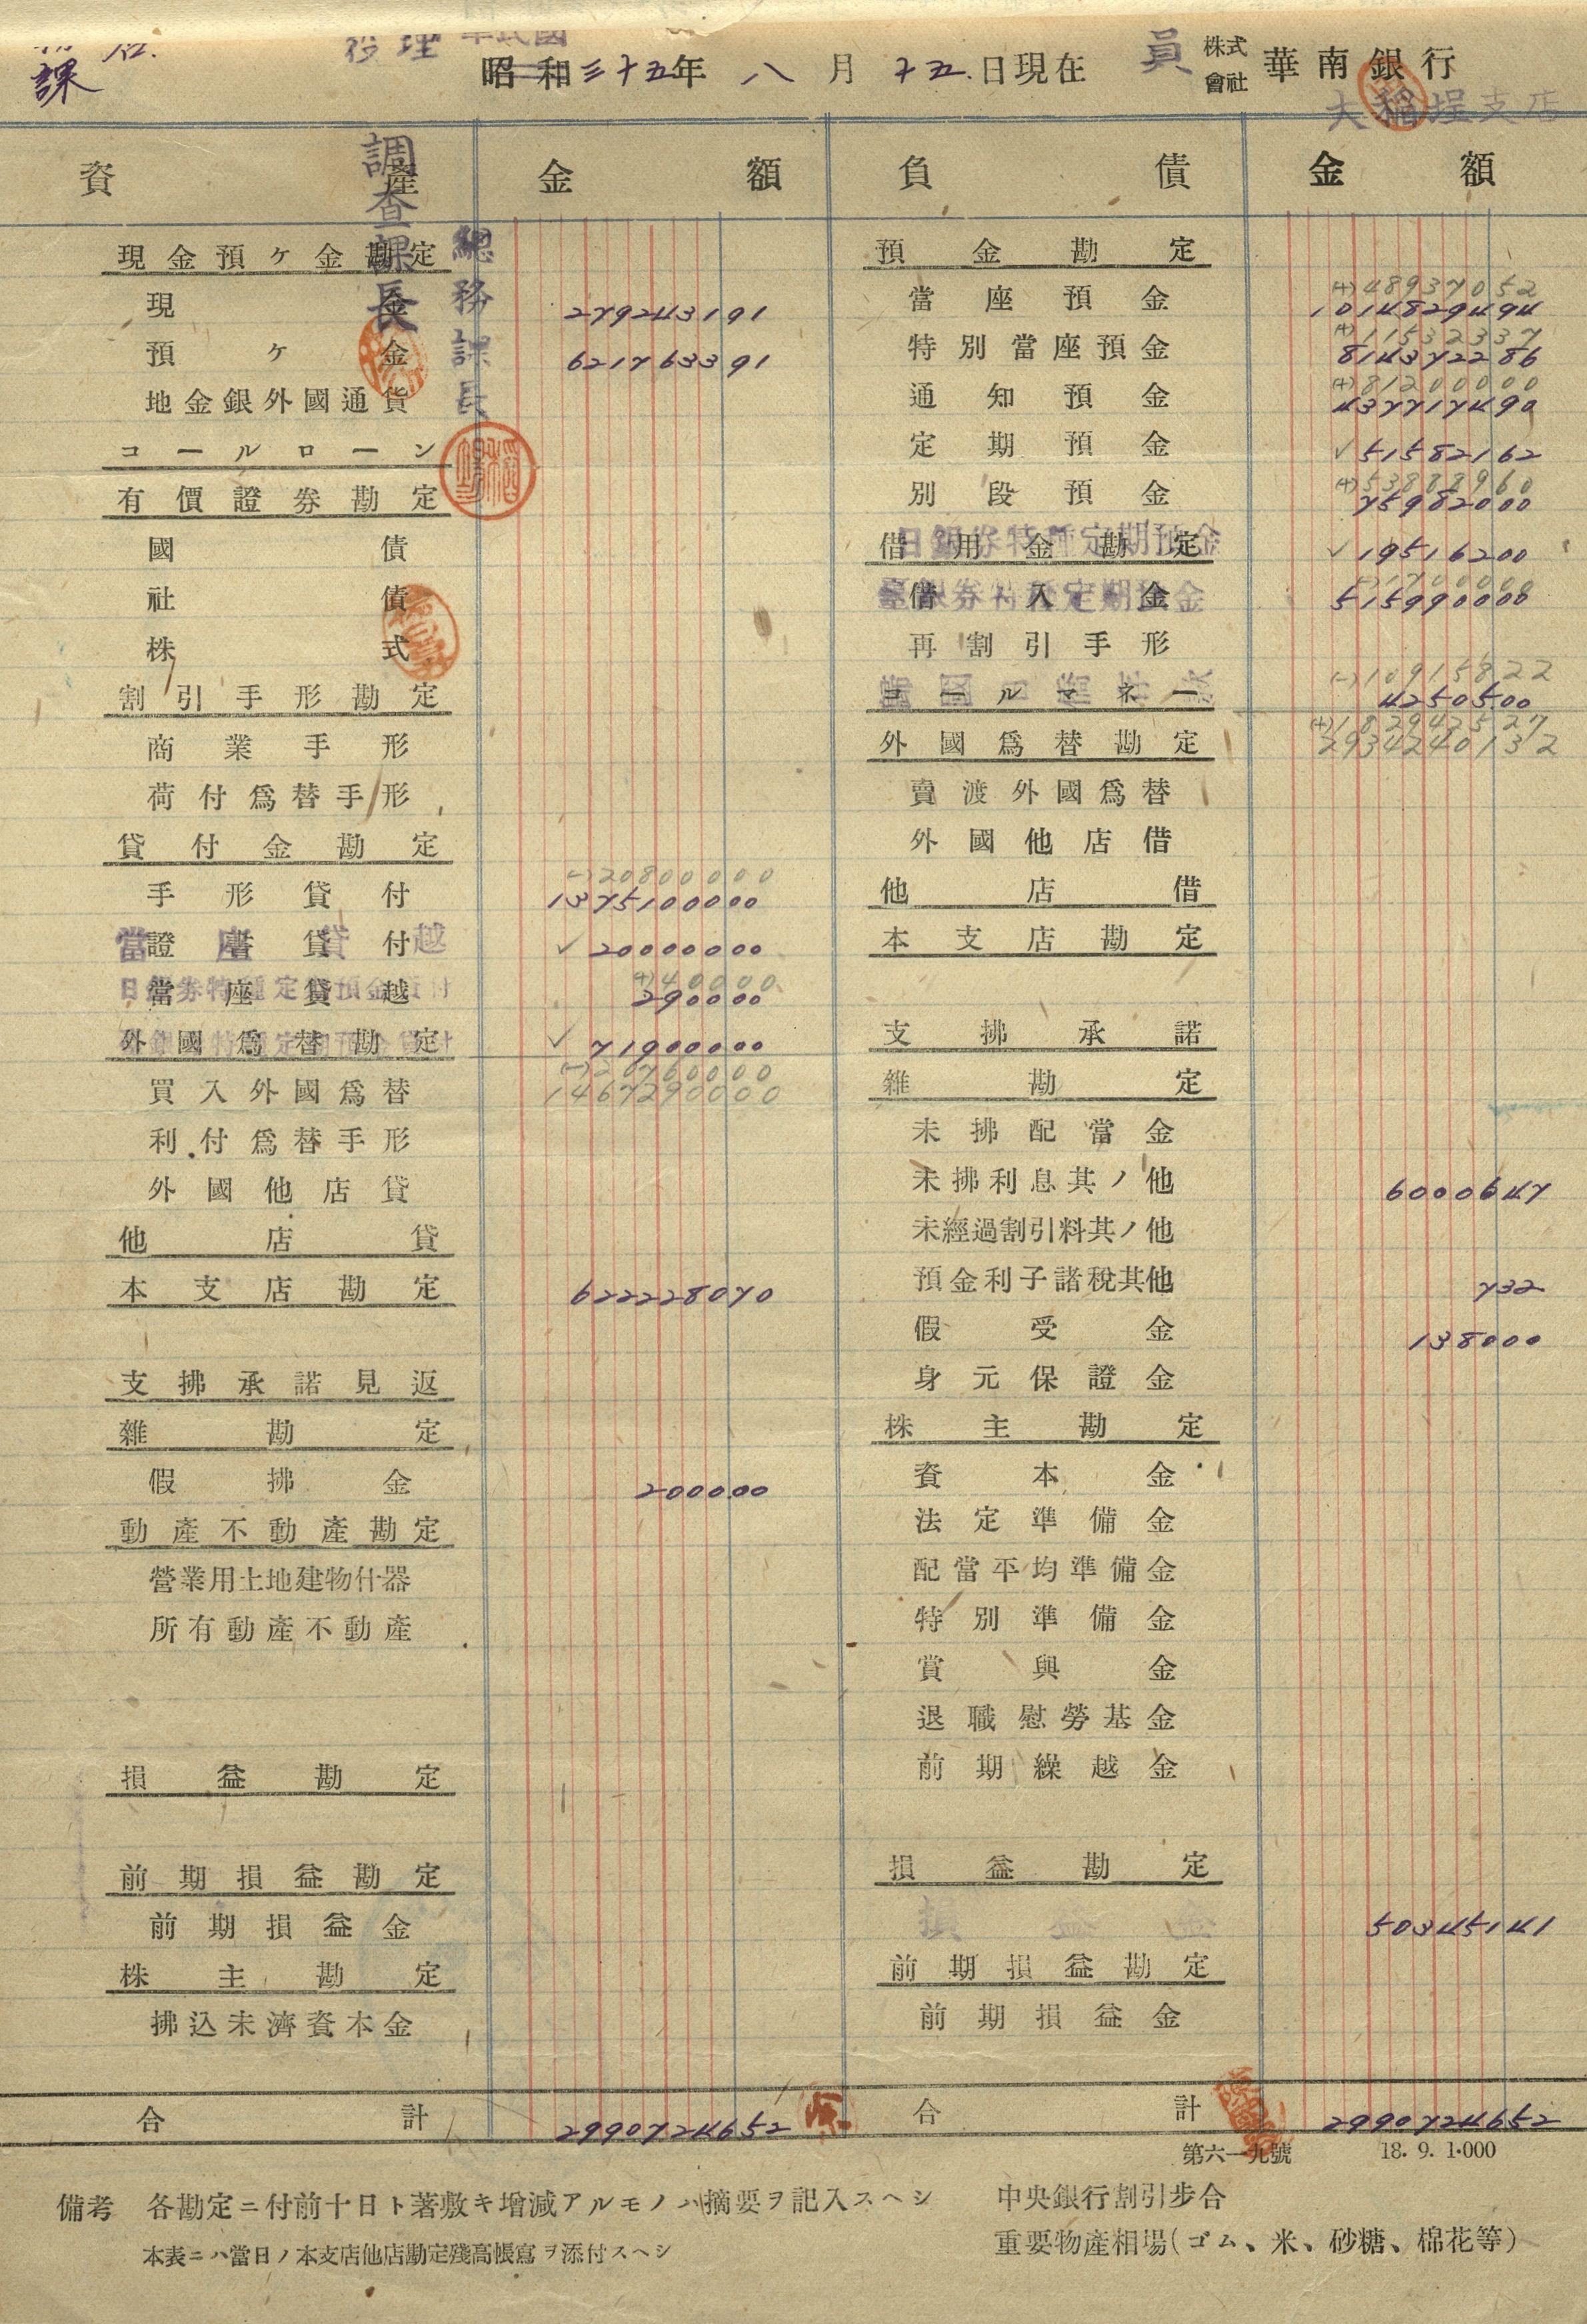 課
理
昭和三十五年 八月十五日現在
員
株式會社 華南銀行
大稻埕支店
調查課長
總務課長
資產 金額 負債 金額
現金預ケ金勘定
現金 279243191
預ケ金 621763391
地金銀外國通貨
コールローン
有價證券勘定
國債
社債
株式
割引手形勘定
商業手形
荷付爲替手形
貸付金勘定
(-)20800000
手形貸付 1375100000
證書貸付
當座貸越 ✓20000000
(+)40000
當座貸越
日銀券特種定期預金貸付 290000
外國爲替勘定 ✓71900000
(-)20760000
買入外國爲替 1467290000
利付爲替手形
外國他店貸
他店貸
本支店勘定 622228070
支拂承諾見返
雜勘定
假拂金 200000
動產不動產勘定
營業用土地建物什器
所有動產不動產
損益勘定
前期損益勘定
前期損益金
株主勘定
拂込未濟資本金
合計 2990724652
預金勘定
(+)48937052
當座預金 1014829494
(+)11532337
特別當座預金 814372286
(+)81200000
通知預金 437717490
定期預金 ✓51582162
(+)53888960
別段預金 75982000
借用金勘定
日銀券特種定期預金 ✓19516200
(-)1700000
借入金
臺銀券特種定期預金 515990000
再割引手形
(-)10915822
コールマネー 4250500
(+)182942527
外國爲替勘定 2934240132
賣渡外國爲替
外國他店借
他店借
本支店勘定
支拂承諾
雜勘定
未拂配當金
未拂利息其ノ他 6000647
未經過割引料其ノ他
預金利子諸稅其他 732
假受金 138000
身元保證金
株主勘定
資本金
法定準備金
配當平均準備金
特別準備金
賞與金
退職慰勞基金
前期繰越金
損益勘定
損益金 50345141
前期損益勘定
前期損益金
合計 2990724652
第六一九號 18. 9. 1·000
備考 各勘定ニ付前十日ト著敷キ增減アルモノハ摘要ヲ記入スヘシ
本表ニハ當日ノ本支店他店勘定殘高帳寫ヲ添付スヘシ
中央銀行割引步合
重要物產相場(ゴム、米、砂糖、棉花等)